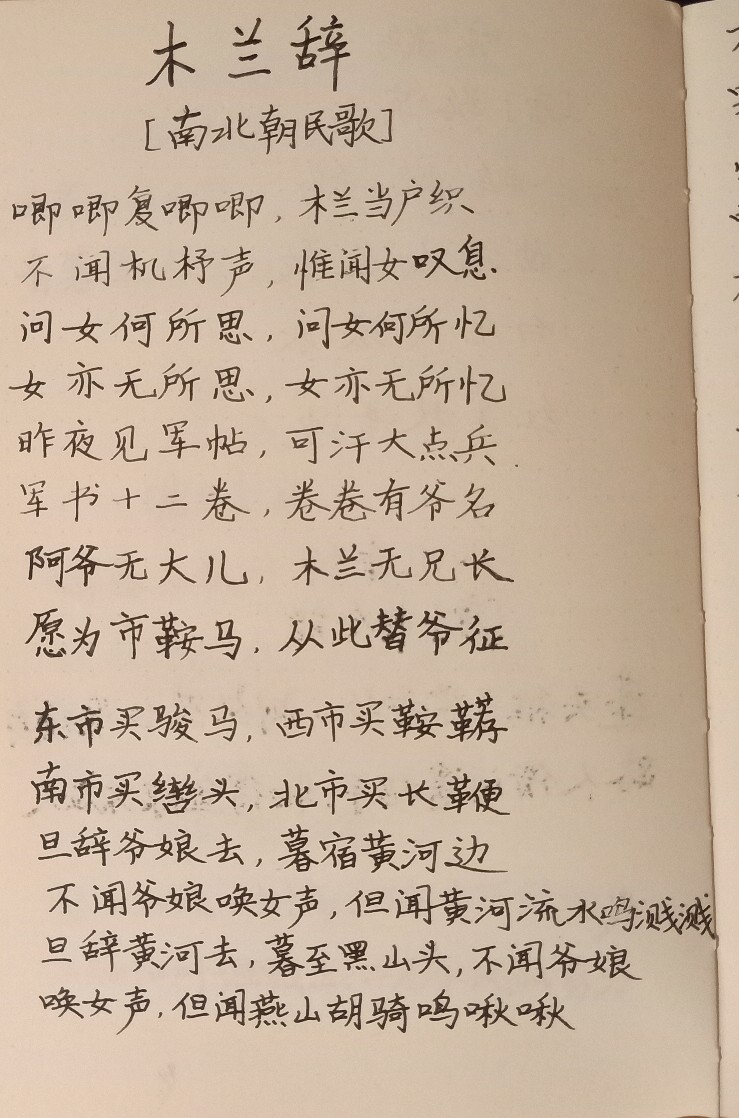 木兰辞
[南北朝民歌]
唧唧复唧唧,木兰当户织
不闻机杼声,惟闻女叹息
问女何所思,问女何所忆
女亦无所思,女亦无所忆
昨夜见军帖,可汗大点兵.
军书十二卷,卷卷有爷名
阿爷无大儿,木兰无兄长
愿为市鞍马,从此替爷征
东市买骏马,西市买鞍鞯
南市买辔头,北市买长鞭
旦辞爷娘去,暮宿黄河边
不闻爷娘唤女声,但闻黄河流水鸣溅溅
旦辞黄河去,暮至黑山头,不闻爷娘
唤女声,但闻燕山胡骑鸣啾啾